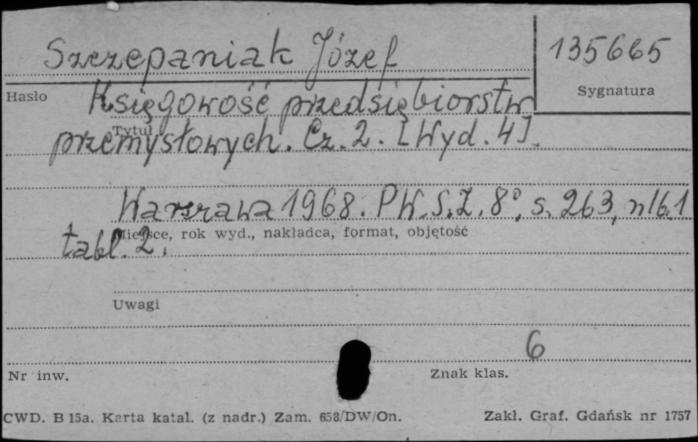 Szczepaniak Józef
135665
Hasło
Sygnatura
Księgowość przedsiębiorstw
Tytuł
przemysłowych. Cz. 2. [Wyd. 4].
Warszawa 1968. PW.S.Z. 8°, s. 263, nlb. 1
Miejsce, rok wyd., nakładca, format, objętość
tabl. 2.
Uwagi
6
Nr inw.
Znak klas.
CWD. B 15a. Karta katal. (z nadr.) Zam. 658/DW/On.
Zakł. Graf. Gdańsk nr 1757